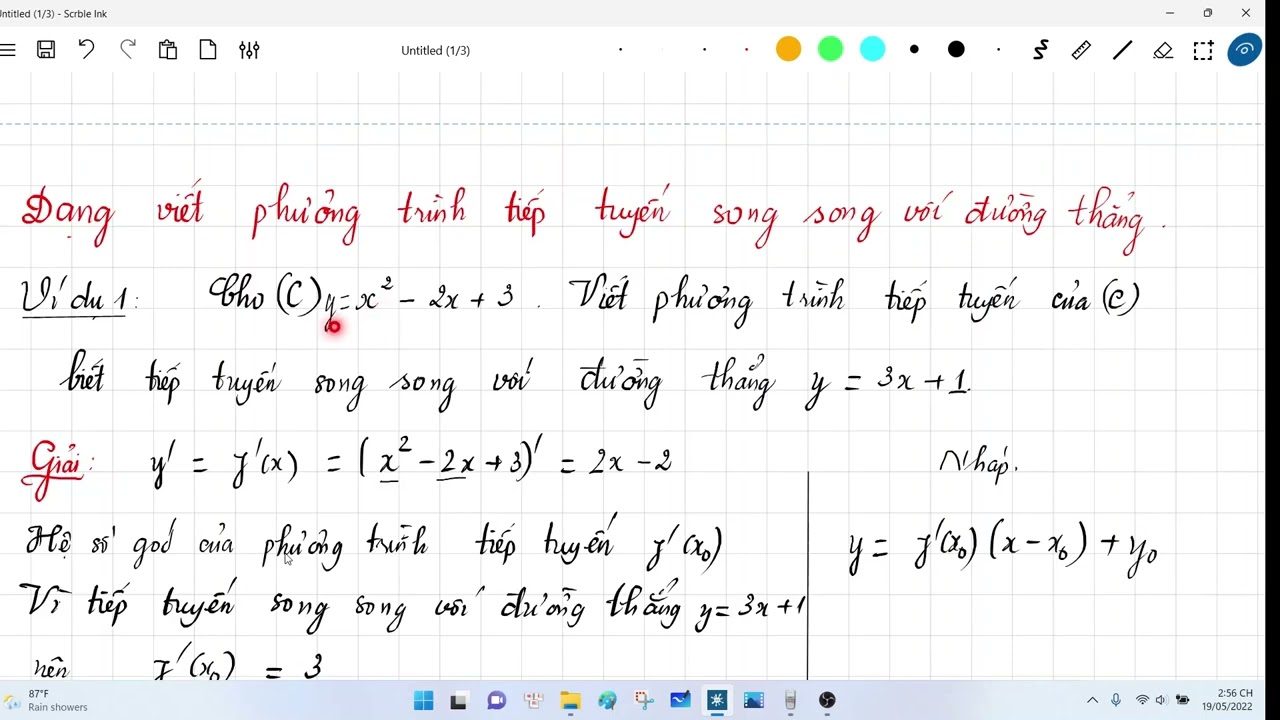 Untitled (1/3) - Scrble Ink
Untitled (1/3)
Dạng viết phương trình tiếp tuyến song song với đường thẳng.
Ví dụ 1: Cho (C) y = x² - 2x + 3. Viết phương trình tiếp tuyến của (C)
biết tiếp tuyến song song với đường thẳng y = 3x + 1.
Giải: y' = f'(x) = (x² - 2x + 3)' = 2x - 2
Hệ số góc của phương trình tiếp tuyến f'(x₀)
Vì tiếp tuyến song song với đường thẳng y = 3x + 1
nên f'(x₀) = 3
Nháp.
y = f'(x₀)(x - x₀) + y₀
87°F
Rain showers
2:56 CH
19/05/2022